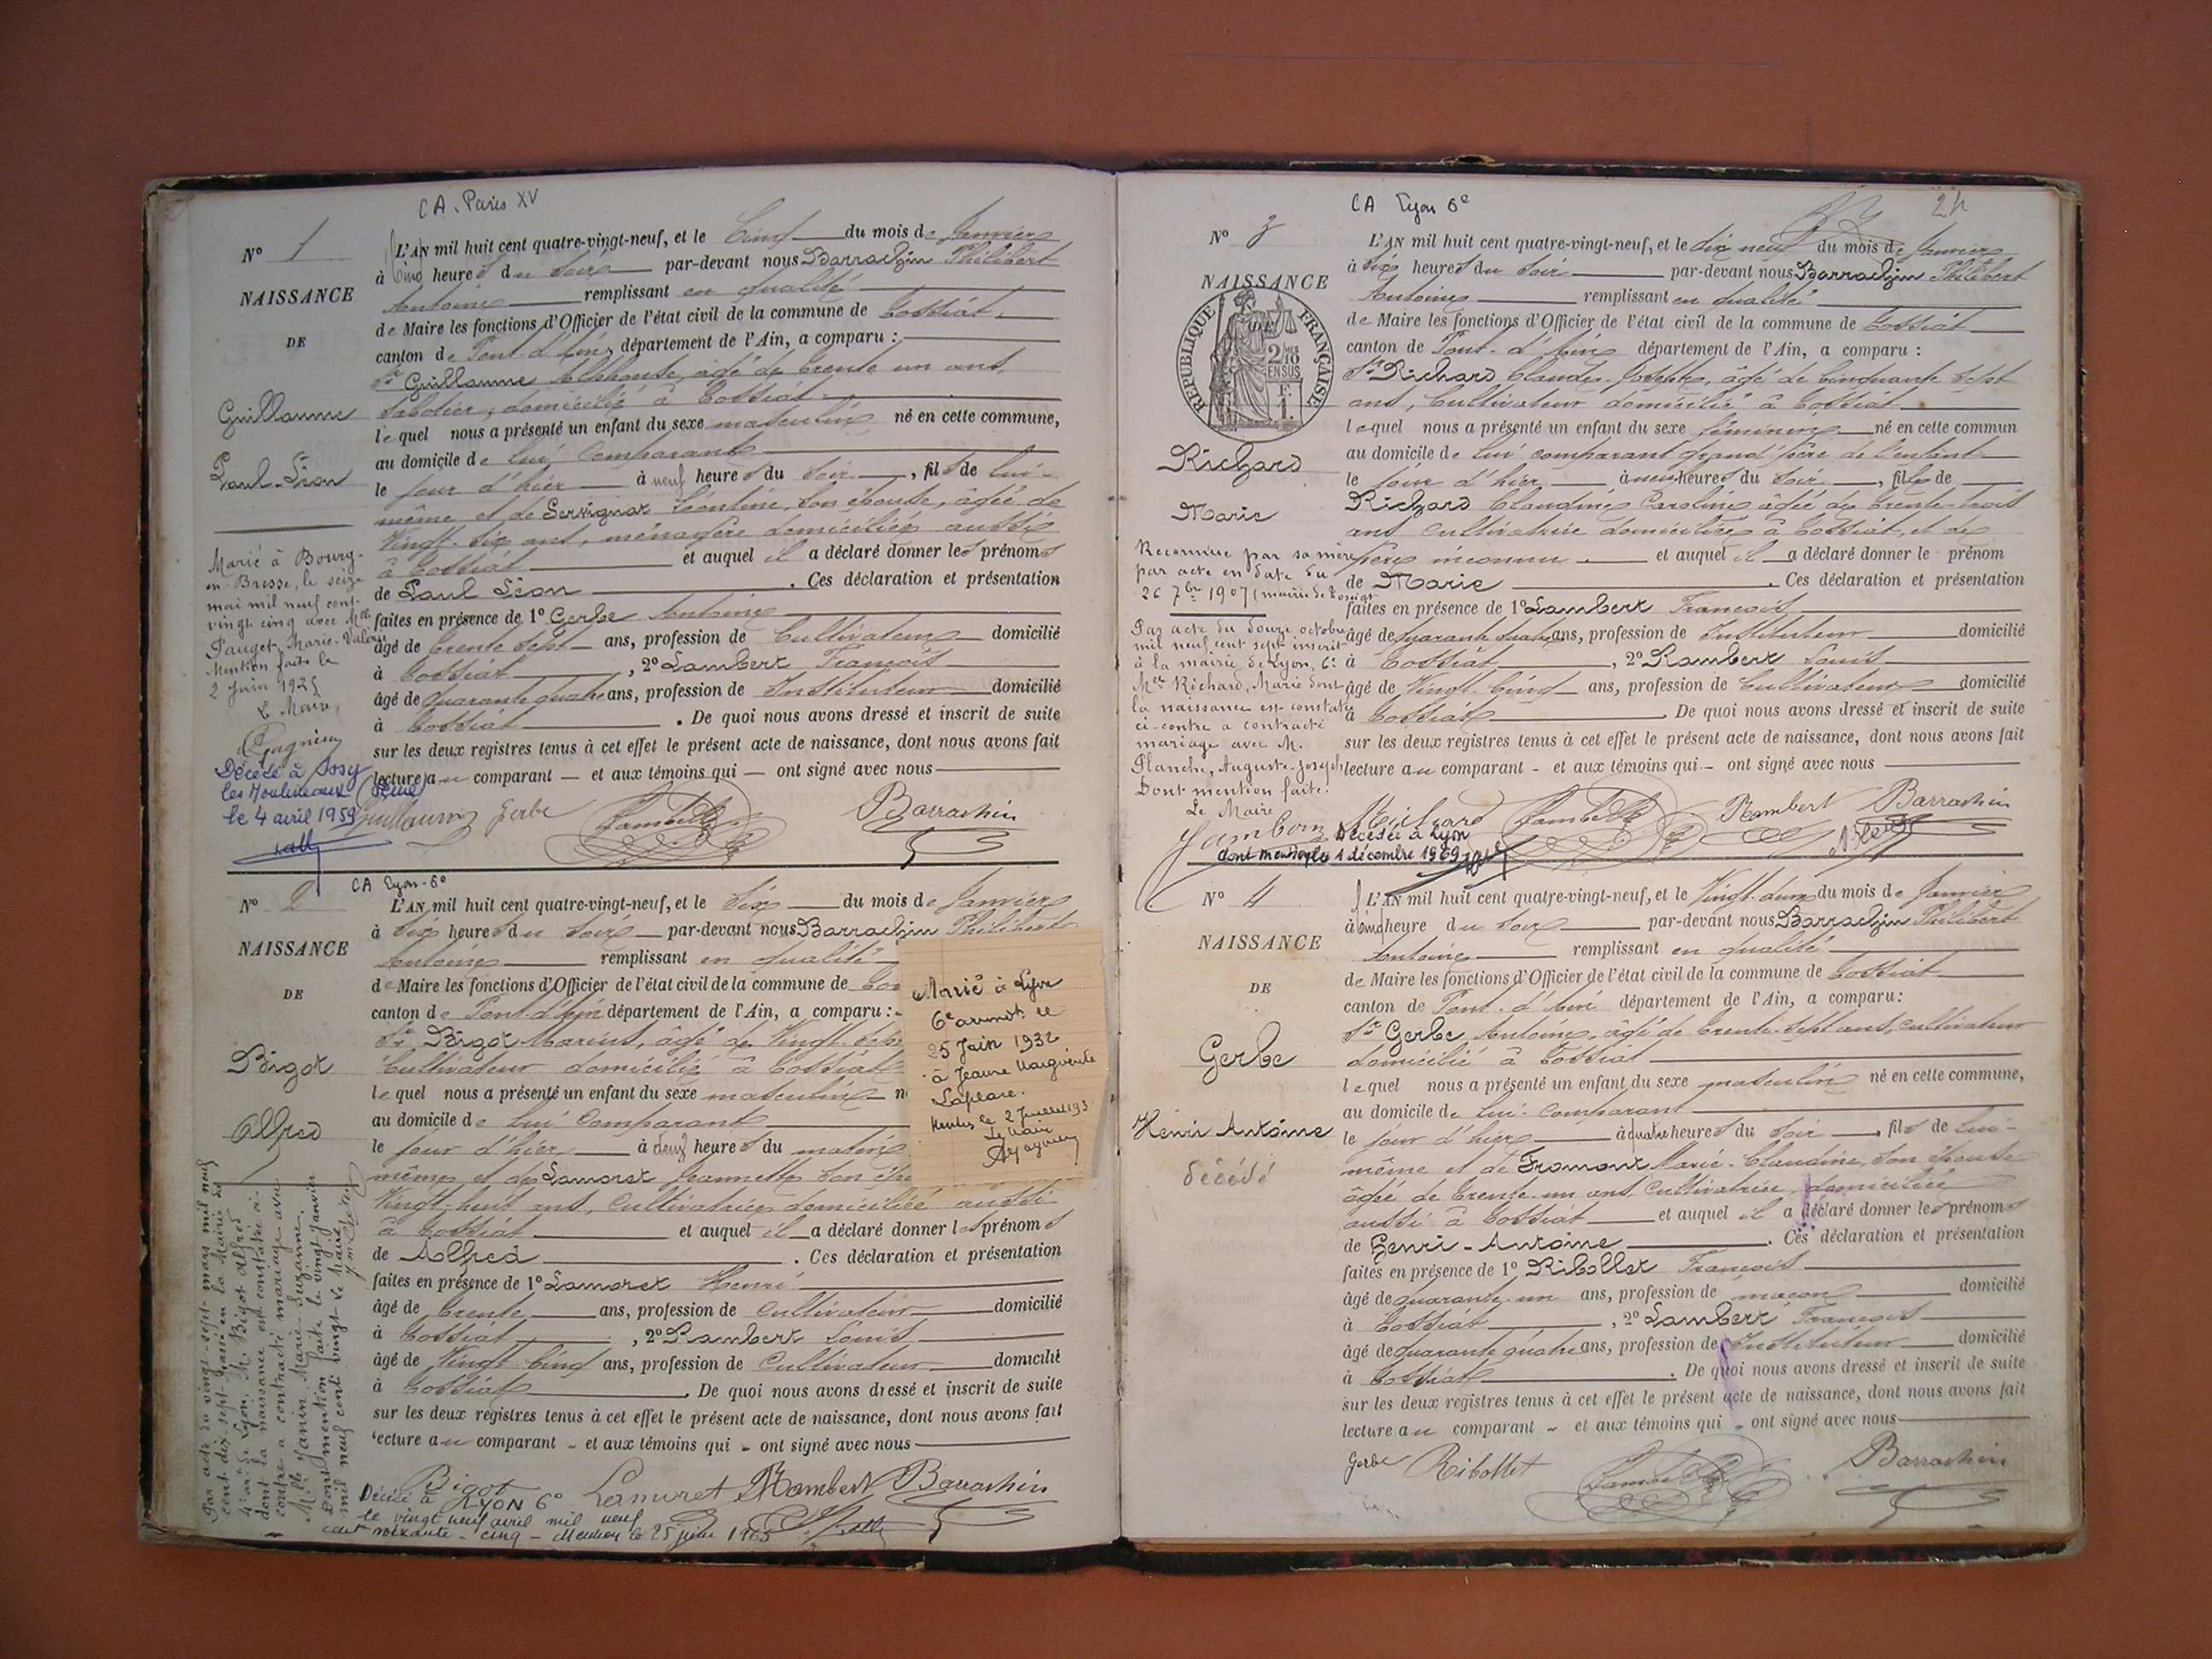 CA. Paris XV
N° 1
NAISSANCE
DE
Guillaume
Paul-Léon
L'AN mil huit cent quatre-vingt-neuf, et le Cinq du mois de Janvier
à Cinq heures du Soir par-devant nous Barrachin Philibert
Antoine remplissant en qualité
de Maire les fonctions d'Officier de l'état civil de la commune de Tossiat,
canton de Pont-d'Ain, département de l'Ain, a comparu :
Sr Guillaume Alphonse, âgé de trente un ans,
Sabotier, domicilié à Tossiat
lequel nous a présenté un enfant du sexe masculin né en cette commune,
au domicile de lui comparant
le jour d'hier à neuf heures du Soir, fils de lui-
même et de Servignat Léontine, son épouse, âgée de
Vingt-six ans, ménagère domiciliée aussi
à Tossiat et auquel il a déclaré donner les prénoms
de Paul Léon. Ces déclaration et présentation
faites en présence de 1° Gerbe Antoine
âgé de trente sept ans, profession de Cultivateur domicilié
à Tossiat, 2° Lambert François
âgé de quarante quatre ans, profession de Instituteur domicilié
à Tossiat. De quoi nous avons dressé et inscrit de suite
sur les deux registres tenus à cet effet le présent acte de naissance, dont nous avons fait
lecture au comparant — et aux témoins qui — ont signé avec nous
Guillaume Gerbe Lambert Barrachin
Marié à Bourg-
en-Bresse, le seize
mai mil neuf cent-
vingt cinq avec Mlle
Pauget, Marie-Valérie
Mention faite le
2 Juin 1925
Le Maire,
Décédé à Issy
les Moulineaux (Seine)
le 4 avril 1959
CA Lyon-6e
N° 2
NAISSANCE
DE
Bigot
Alfred
L'AN mil huit cent quatre-vingt-neuf, et le Six du mois de Janvier
à Six heures du Soir par-devant nous Barrachin Philibert
Antoine remplissant en qualité
de Maire les fonctions d'Officier de l'état civil de la commune de
canton de Pont-d'Ain département de l'Ain, a comparu :
Sr Bigot Marius, âgé de Vingt-sept
Cultivateur domicilié à Tossiat
lequel nous a présenté un enfant du sexe masculin
au domicile de lui comparant
le jour d'hier à deux heures du matin
même et de Lamoret Jeannette son
Vingt-huit ans, Cultivatrice domiciliée aussi
à Tossiat et auquel il a déclaré donner les prénoms
de Alfred. Ces déclaration et présentation
faites en présence de 1° Lamoret Henri
âgé de trente ans, profession de Cultivateur domicilié
à Tossiat, 2° Rambert Louis
âgé de Vingt Cinq ans, profession de Cultivateur domicilié
à Tossiat. De quoi nous avons dressé et inscrit de suite
sur les deux registres tenus à cet effet le présent acte de naissance, dont nous avons fait
lecture au comparant - et aux témoins qui - ont signé avec nous
Bigot Lamoret Rambert Barrachin
Décédé à LYON 6e
le vingt neuf avril mil neuf
cent soixante-cinq - Mention le 25 1965
Par acte du vingt-sept mars mil neuf
cent dix-sept passé en la Mairie du
4e arrt de Lyon, M. Bigot Alfred
dont la naissance est constatée ci-
contre a contracté mariage avec
Mlle Janin Marie-Suzanne.
Dont mention faite le vingt Janvier
mil neuf cent vingt. Le Maire
Marié à Lyon
6e arrondt le
25 Juin 1932
à Jeanne Marguerite
Laplace.
Mention le 2 Juillet 193
Le Maire
24
CA Lyon 6e
N° 3
NAISSANCE
DE
REPUBLIQUE FRANÇAISE
2/10 EN SUS
F. 1.
Richard
Marie
L'AN mil huit cent quatre-vingt-neuf, et le dix neuf du mois de Janvier
à Six heures du Soir par-devant nous Barrachin Philibert
Antoine remplissant en qualité
de Maire les fonctions d'Officier de l'état civil de la commune de Tossiat
canton de Pont-d'Ain département de l'Ain, a comparu :
Sr Richard Claude-Joseph, âgé de Cinquante sept
ans, Cultivateur domicilié à Tossiat
lequel nous a présenté un enfant du sexe féminin né en cette commun
au domicile de lui comparant grand père de l'enfant
le jour d'hier, à neuf heures du Soir, fille de
Richard Claudine Caroline âgée de trente-trois
ans Cultivatrice domiciliée à Tossiat, et de
père inconnu. et auquel il a déclaré donner le prénom
de Marie. Ces déclaration et présentation
faites en présence de 1° Lambert François
âgé de quarante quatre ans, profession de Instituteur domicilié
à Tossiat, 2° Rambert Louis
âgé de Vingt-Cinq ans, profession de Cultivateur domicilié
à Tossiat. De quoi nous avons dressé et inscrit de suite
sur les deux registres tenus à cet effet le présent acte de naissance, dont nous avons fait
lecture au comparant - et aux témoins qui - ont signé avec nous
Richard Lambert Rambert Barrachin
Reconnue par sa mère
par acte en date du
26 7bre 1907 (mairie de Tossiat
Par acte du douze octobre
mil neuf cent sept inscrit
à la mairie de Lyon, 6e
Mlle Richard, Marie dont
la naissance est constatée
ci-contre a contracté
mariage avec M.
Planche, Auguste-Joseph
Dont mention faite.
Le Maire
Décédée à Lyon
dont mention le 1 décembre 1969
N° 4
NAISSANCE
DE
Gerbe
Henri Antoine
décédé
L'AN mil huit cent quatre-vingt-neuf, et le Vingt-deux du mois de Janvier
à Cinq heure du Soir par-devant nous Barrachin Philibert
Antoine remplissant en qualité
de Maire les fonctions d'Officier de l'état civil de la commune de Tossiat
canton de Pont-d'Ain département de l'Ain, a comparu :
Sr Gerbe Antoine, âgé de trente-sept ans, cultivateur
domicilié à Tossiat
lequel nous a présenté un enfant du sexe masculin né en cette commune,
au domicile de lui-comparant
le jour d'hier à quatre heures du Soir, fils de lui-
même et de Fromont Marie-Claudine, son épouse
âgée de trente-un ans, Cultivatrice, domiciliée
aussi à Tossiat et auquel il a déclaré donner les prénoms
de Henri-Antoine. Ces déclaration et présentation
faites en présence de 1° Ribollet François
âgé de quarante-un ans, profession de maçon domicilié
à Tossiat, 2° Lambert François
âgé de quarante quatre ans, profession de Instituteur domicilié
à Tossiat. De quoi nous avons dressé et inscrit de suite
sur les deux registres tenus à cet effet le présent acte de naissance, dont nous avons fait
lecture au comparant - et aux témoins qui - ont signé avec nous
Gerbe Ribollet Lambert Barrachin